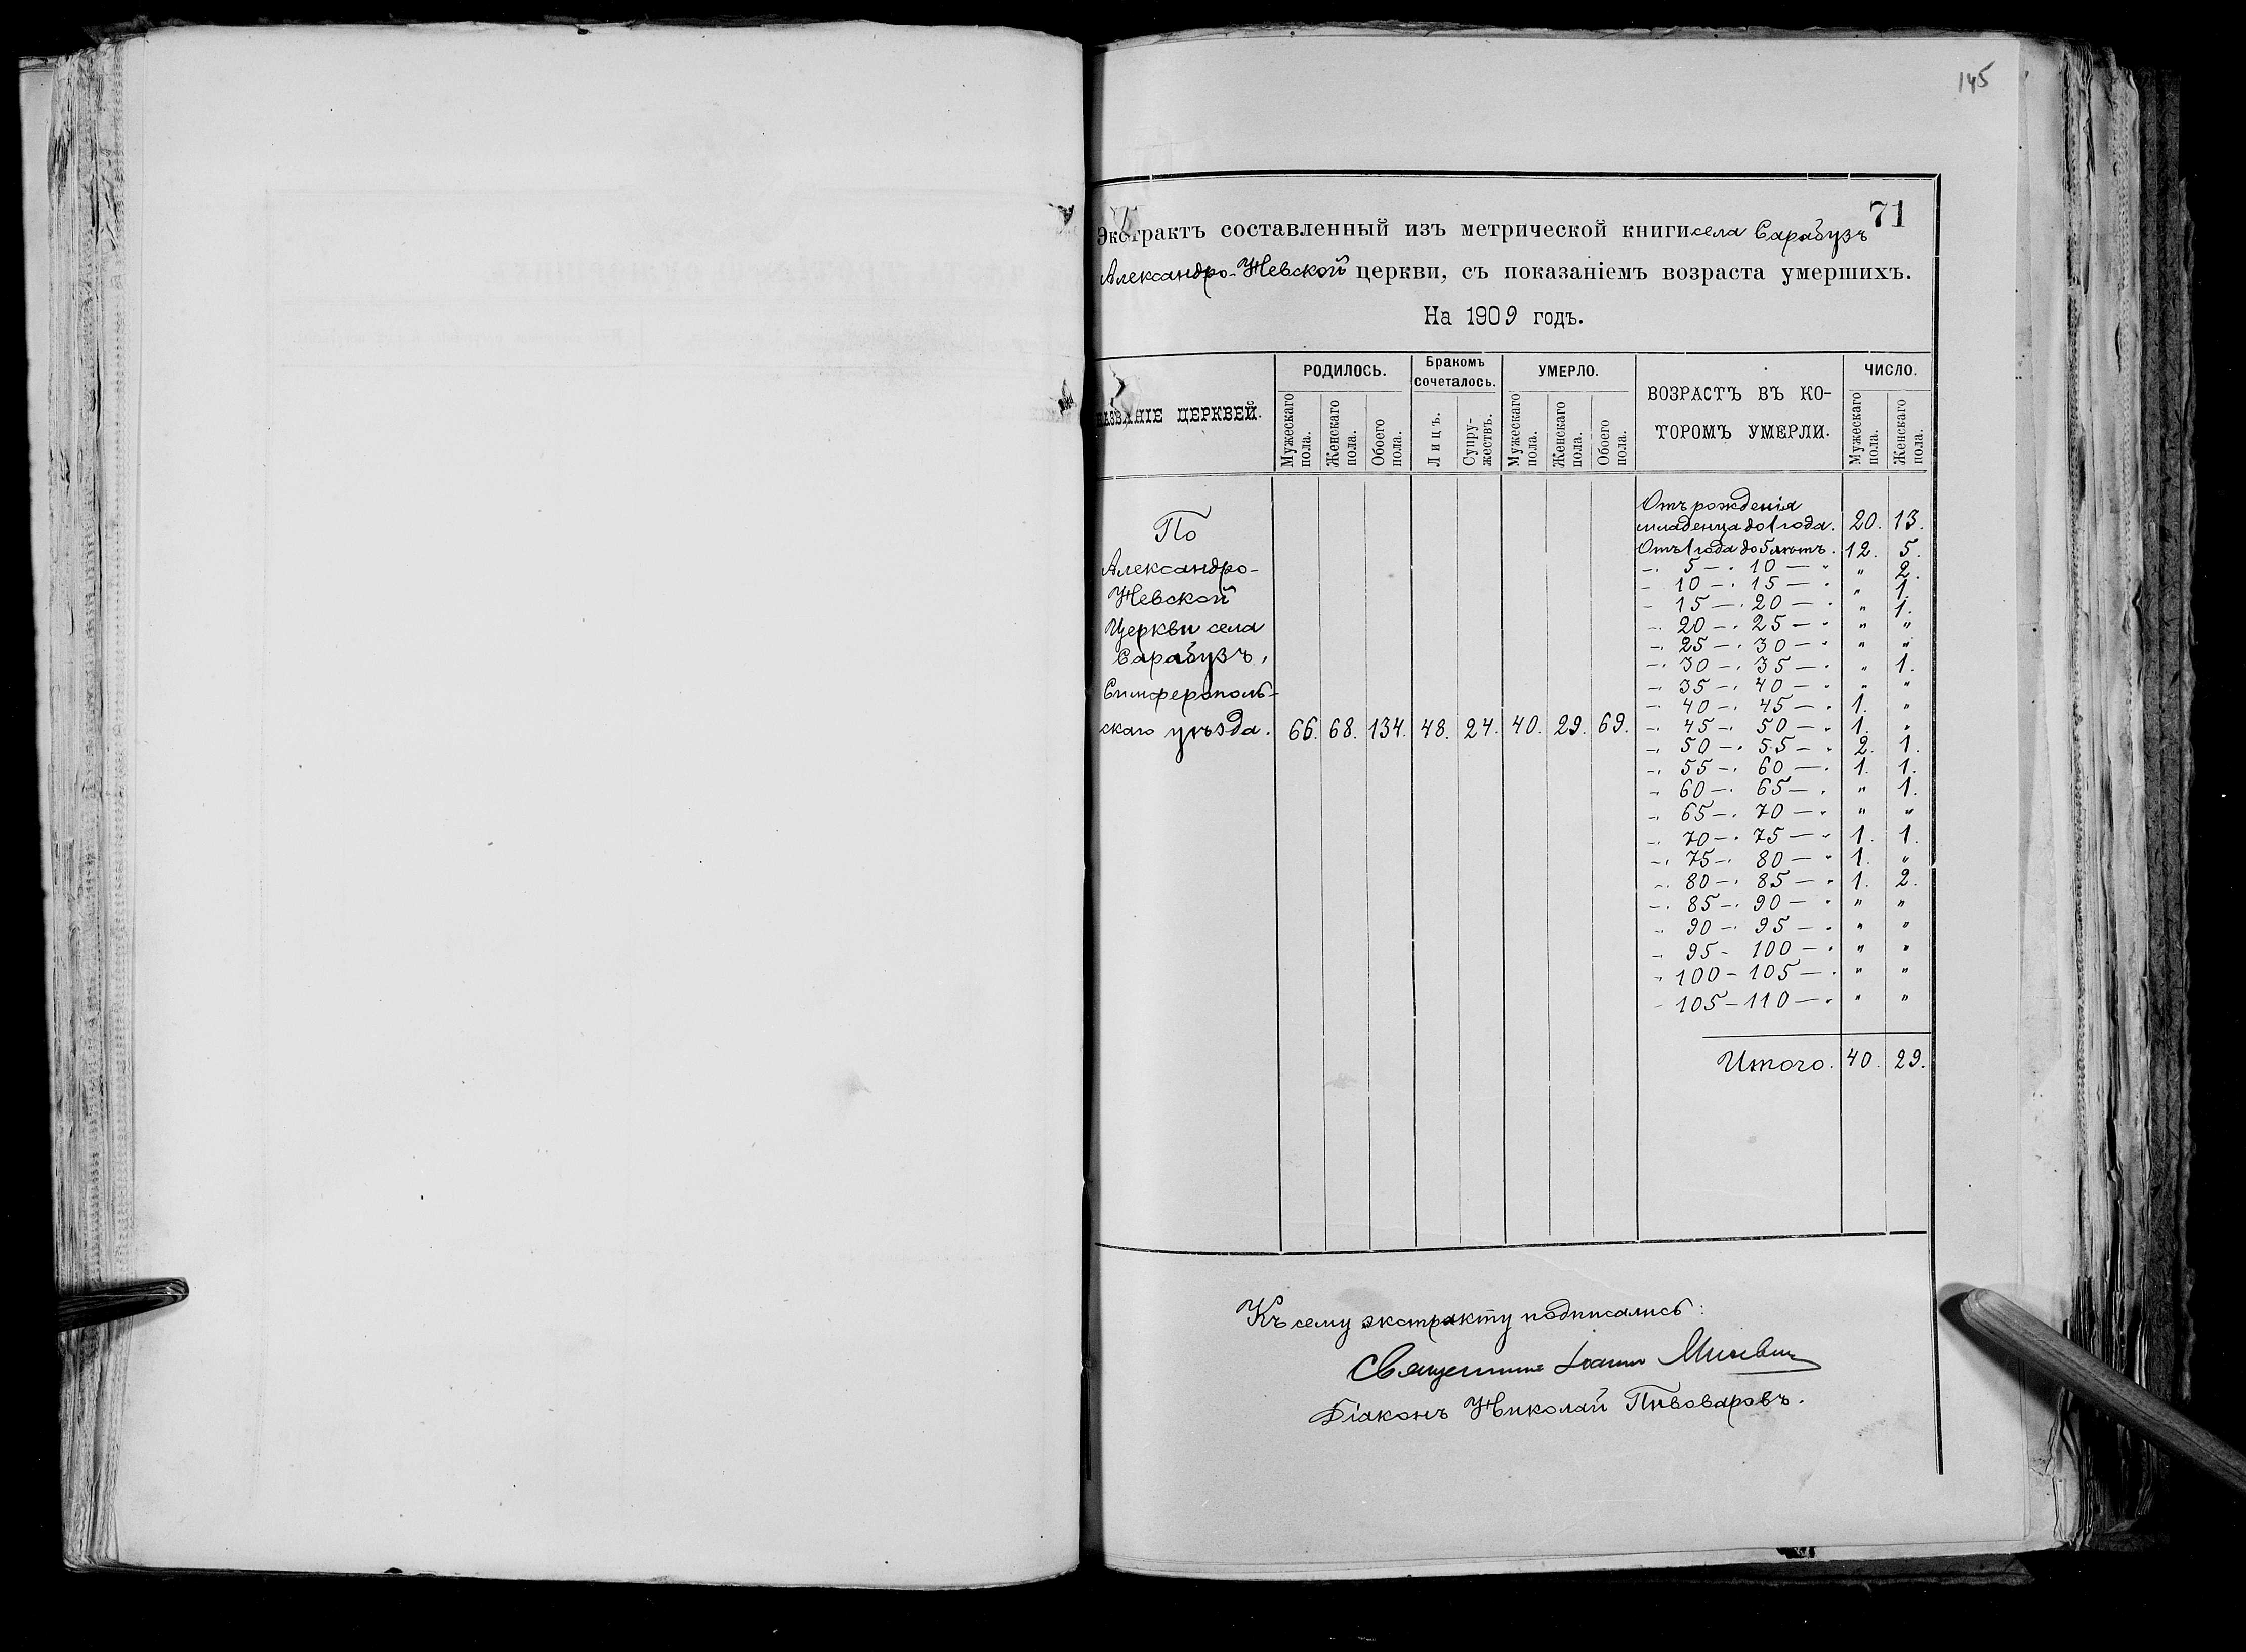 145
71
Экстрактъ составленный изъ метрической книги села Сарабузъ
Александро-Невской церкви, съ показаніемъ возраста умершихъ.
На 1909 годъ.
НАЗВАНІЕ ЦЕРКВЕЙ.
РОДИЛОСЬ.
Мужескаго пола.
Женскаго пола.
Обоего пола.
Бракомъ сочеталось.
Лицъ.
Супружествъ.
УМЕРЛО.
Мужескаго пола.
Женскаго пола.
Обоего пола.
ВОЗРАСТЪ ВЪ КО-
ТОРОМЪ УМЕРЛИ.
ЧИСЛО.
Мужескаго пола.
Женскаго пола.
По
Александро-
Невской
Церкви села
Сарабузъ,
Симферополь-
скаго уѣзда. 66. 68. 134. 48. 24. 40. 29. 69.
Отъ рожденія
младенца до 1 года. 20. 13.
Отъ 1 года до 5 лѣтъ. 12. 5.
— 5 — 10 — " " 2.
— 10 — 15 — " " 1.
— 15 — 20 — " " 1.
— 20 — 25 — " " "
— 25 — 30 — " " "
— 30 — 35 — " " 1.
— 35 — 40 — " " "
— 40 — 45 — " 1. "
— 45 — 50 — " 1. "
— 50 — 55 — " 2. 1.
— 55 — 60 — " 1. 1.
— 60 — 65 — " " 1.
— 65 — 70 — " " "
— 70 — 75 — " 1. 1.
— 75 — 80 — " 1. "
— 80 — 85 — " 1. 2.
— 85 — 90 — " " "
— 90 — 95 — " " "
— 95 - 100 — " " "
- 100 - 105 — " " "
- 105 - 110 — " " "
Итого. 40. 29.
Къ сему экстракту подписались:
Священникъ Іоаннъ
Діаконъ Николай Пивоваровъ.